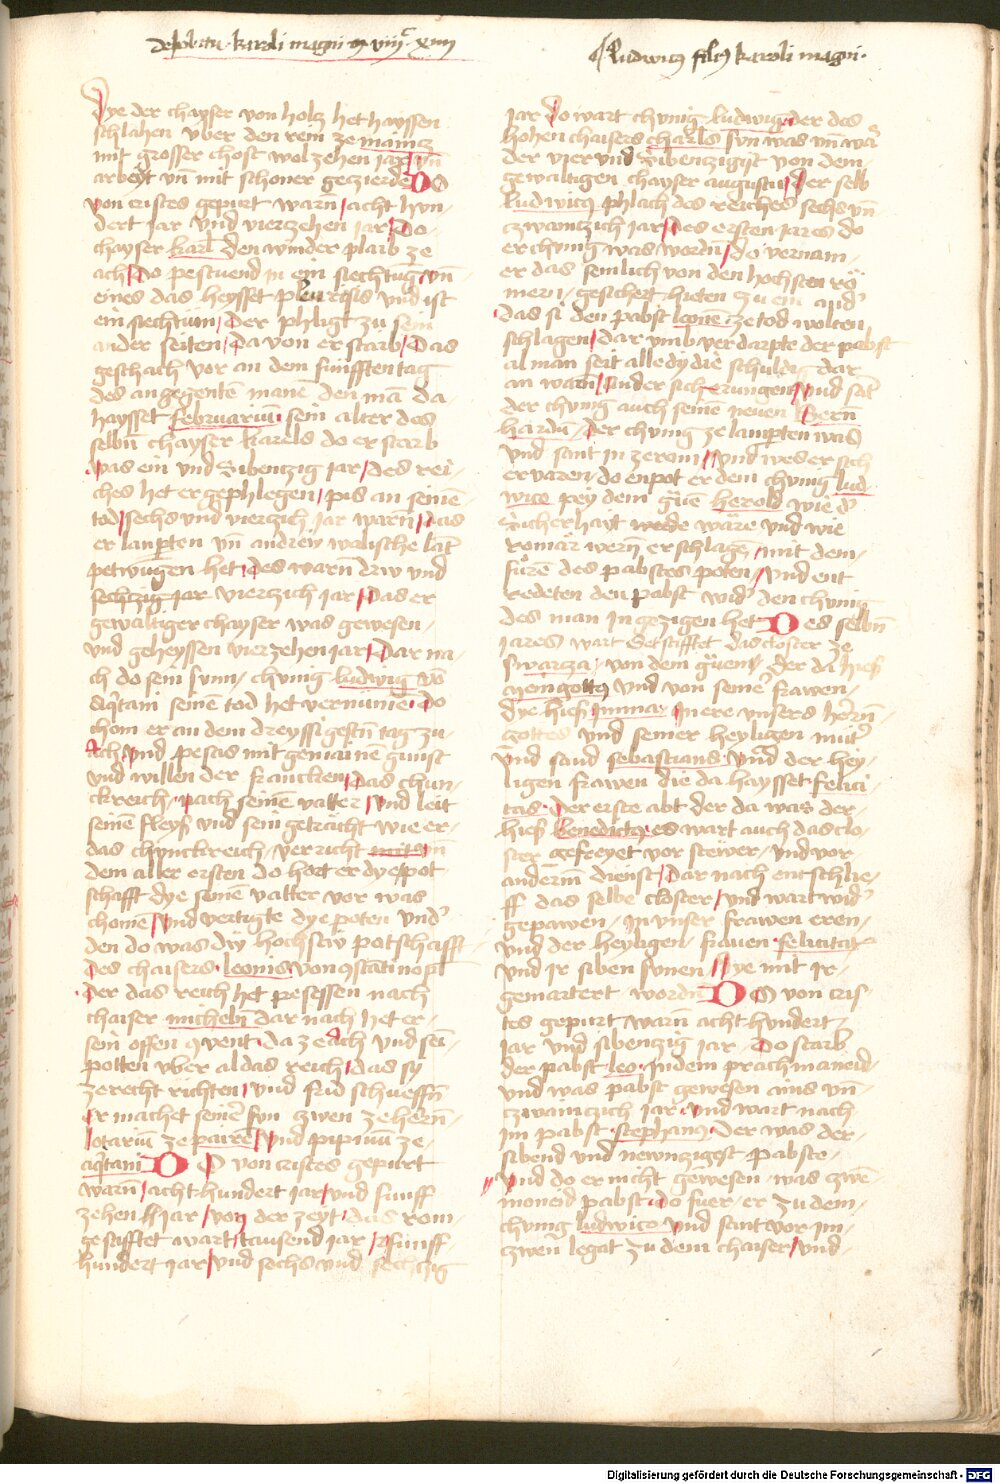 De obitu karoli magni viiij xiiij
ludwicus filius karoli magni
Dye der chayser von holtz het hayssen
schlahen vber den rein ze maintz
mit grosser chost wol zehen jar vn̄
arbeyt vn̄ mit schoner gezierde Do
von cristes gepurt warn acht hun
dert jar vnd vierzehen jar Do
chayser karl den winder plaib ze
ach Do pestuend in ein siechtūg vn̄
eines das heysset pleuresis vnd ist
ein siechtūm Der phligt zu
ander seiten Da von er starb Das
geschach vor an dem funfften tag
des angegentē manē den mā da
haysset februarium sein alter des
selbn̄ chayser karels do er starb
was ein vnd Sibenzig jar Des rei
ches het er gephlegen pis an seinē
tod sechs vnd vierzich jar warn Das
er lanperten vn̄ andrew walische lāt
petwūgen het Des warn drw vnd
sechczig jar vierzich jar Das er
gewaltiger chayser was gewesen
vnd geheyssen vierzehen jar Dar na
ch do sein sunn chunig ludwig vō
aq̄tani seinen tod het vernumē Do
chom er an dem dreyssigestn̄ tag zu
Ach vnd pesas mit gemainē gunst
vnd willen der francken Das chun
ckreich nach seinē vatter vnd leit
seinē fleyss vnd sein getracht wie er
das chunckreich verricht
dem aller ersten Do hort er dye pot
schafft dye seinē vatter vor was
chomē vnd vertigte dye poten vnd
den do was dy hochstw potschafft
des chaisers leonis von 9stātinopl
der das reich het pesessen nach
chaiser micheln̄ Dar nach het er
sein offen 9vent da ze Ach vnd sen̄
potten vber al das reich das sy
ze recht richten vnd frid schueffn̄
er machet seiner sun zwen ze herrn̄
lotarium ze pairē vnd pipinū ze
aq̄tani Do von cristes gepurt
warn̄ acht hundert jar vnd funff
zehen jar von der zeyt das rom
gestifftet wart tausend jar funff
hundert jar vnd sechs vnd sechczig
jar Do wart chunig ludwig der des
hohen chaisers charls sun was vn̄ wā
der vier vnd Sibenzigist von dem
gewaltigen chayser augustus Der selb
ludwicus phlach des reiches sechs vn̄
zwaintzich jar Des ersten jares do
er chunig was wordn̄ do vernam
er das semlich von den hochsten rö
mern gesichert hieten zu ein and'
das si den pabst leonē ze tod wolten
schlagen dar vmb verdarpte der pabst
al man seit alle dy die schuldig dar
an warn in der sicherungen vnd sāt
der chunig auch seinē neuen Bern
hardn̄ der chunig ze lanperten was
vnd sant in ze rom vnd wes er sich
ervaren do enpot er dem chunig lud
wico pey dem grāē herold wie d'
sicherhayt wēde wäre vnd wie
romär wern̄ erschlagē mit dem
fürē des pabstes poten vnd ent
redeten den pabst wid' den chunig
des man in gezigen het Des selbn̄
jares wart Gestifftet das closter ze
swarza von dem grāuen der da hiess
meingottus vnd von seinē frawen
dye hiess Imma In ere vnsers herrn̄
gottes vnd seiner heyligen mut'
vnd sand sebastians vnd der hey
ligen frawen die da haysset felici
tas Der erste abt der da was der
hiess Benedictus es wart auch das clo
ster gefreyet vor stewer vnd vor
anderm̄ dienst Dar nach entschlie
ff das selbe closter vnd wart wid'
gepawen in vnser frawen eren
vnd der heyligen frauen felicitas
vnd ir siben sunen Dye mit ir
gemartert wordn̄ Do von cris
tes gepurt warn̄ acht hundert
jar vnd sibenzig jar Do starb
der pabst leo in dem prachmaneid
vnd was pabst gewesen ains vn̄
zwainczich jar vnd wart nach
im pabst stephanus Der was der
sibend vnd newnzigest pabste
vnd do er nicht gewesen was zwē
moneid pabst Do fuer er zu dem
chunig ludwico vnd sant vor im
zwen legat zu dem chaiser vnd
Digitalisierung gefördert durch die Deutsche Forschungsgemeinschaft - DFG